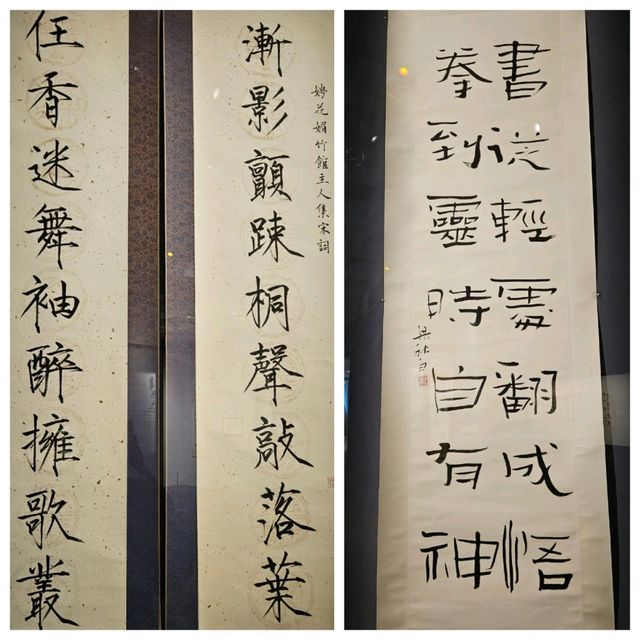 娉花媚竹館主人集宋詞
漸影顫踈桐聲敲落葉
任香迷舞袖醉擁歌叢
書從輕處翻成悟
拳到靈時自有神